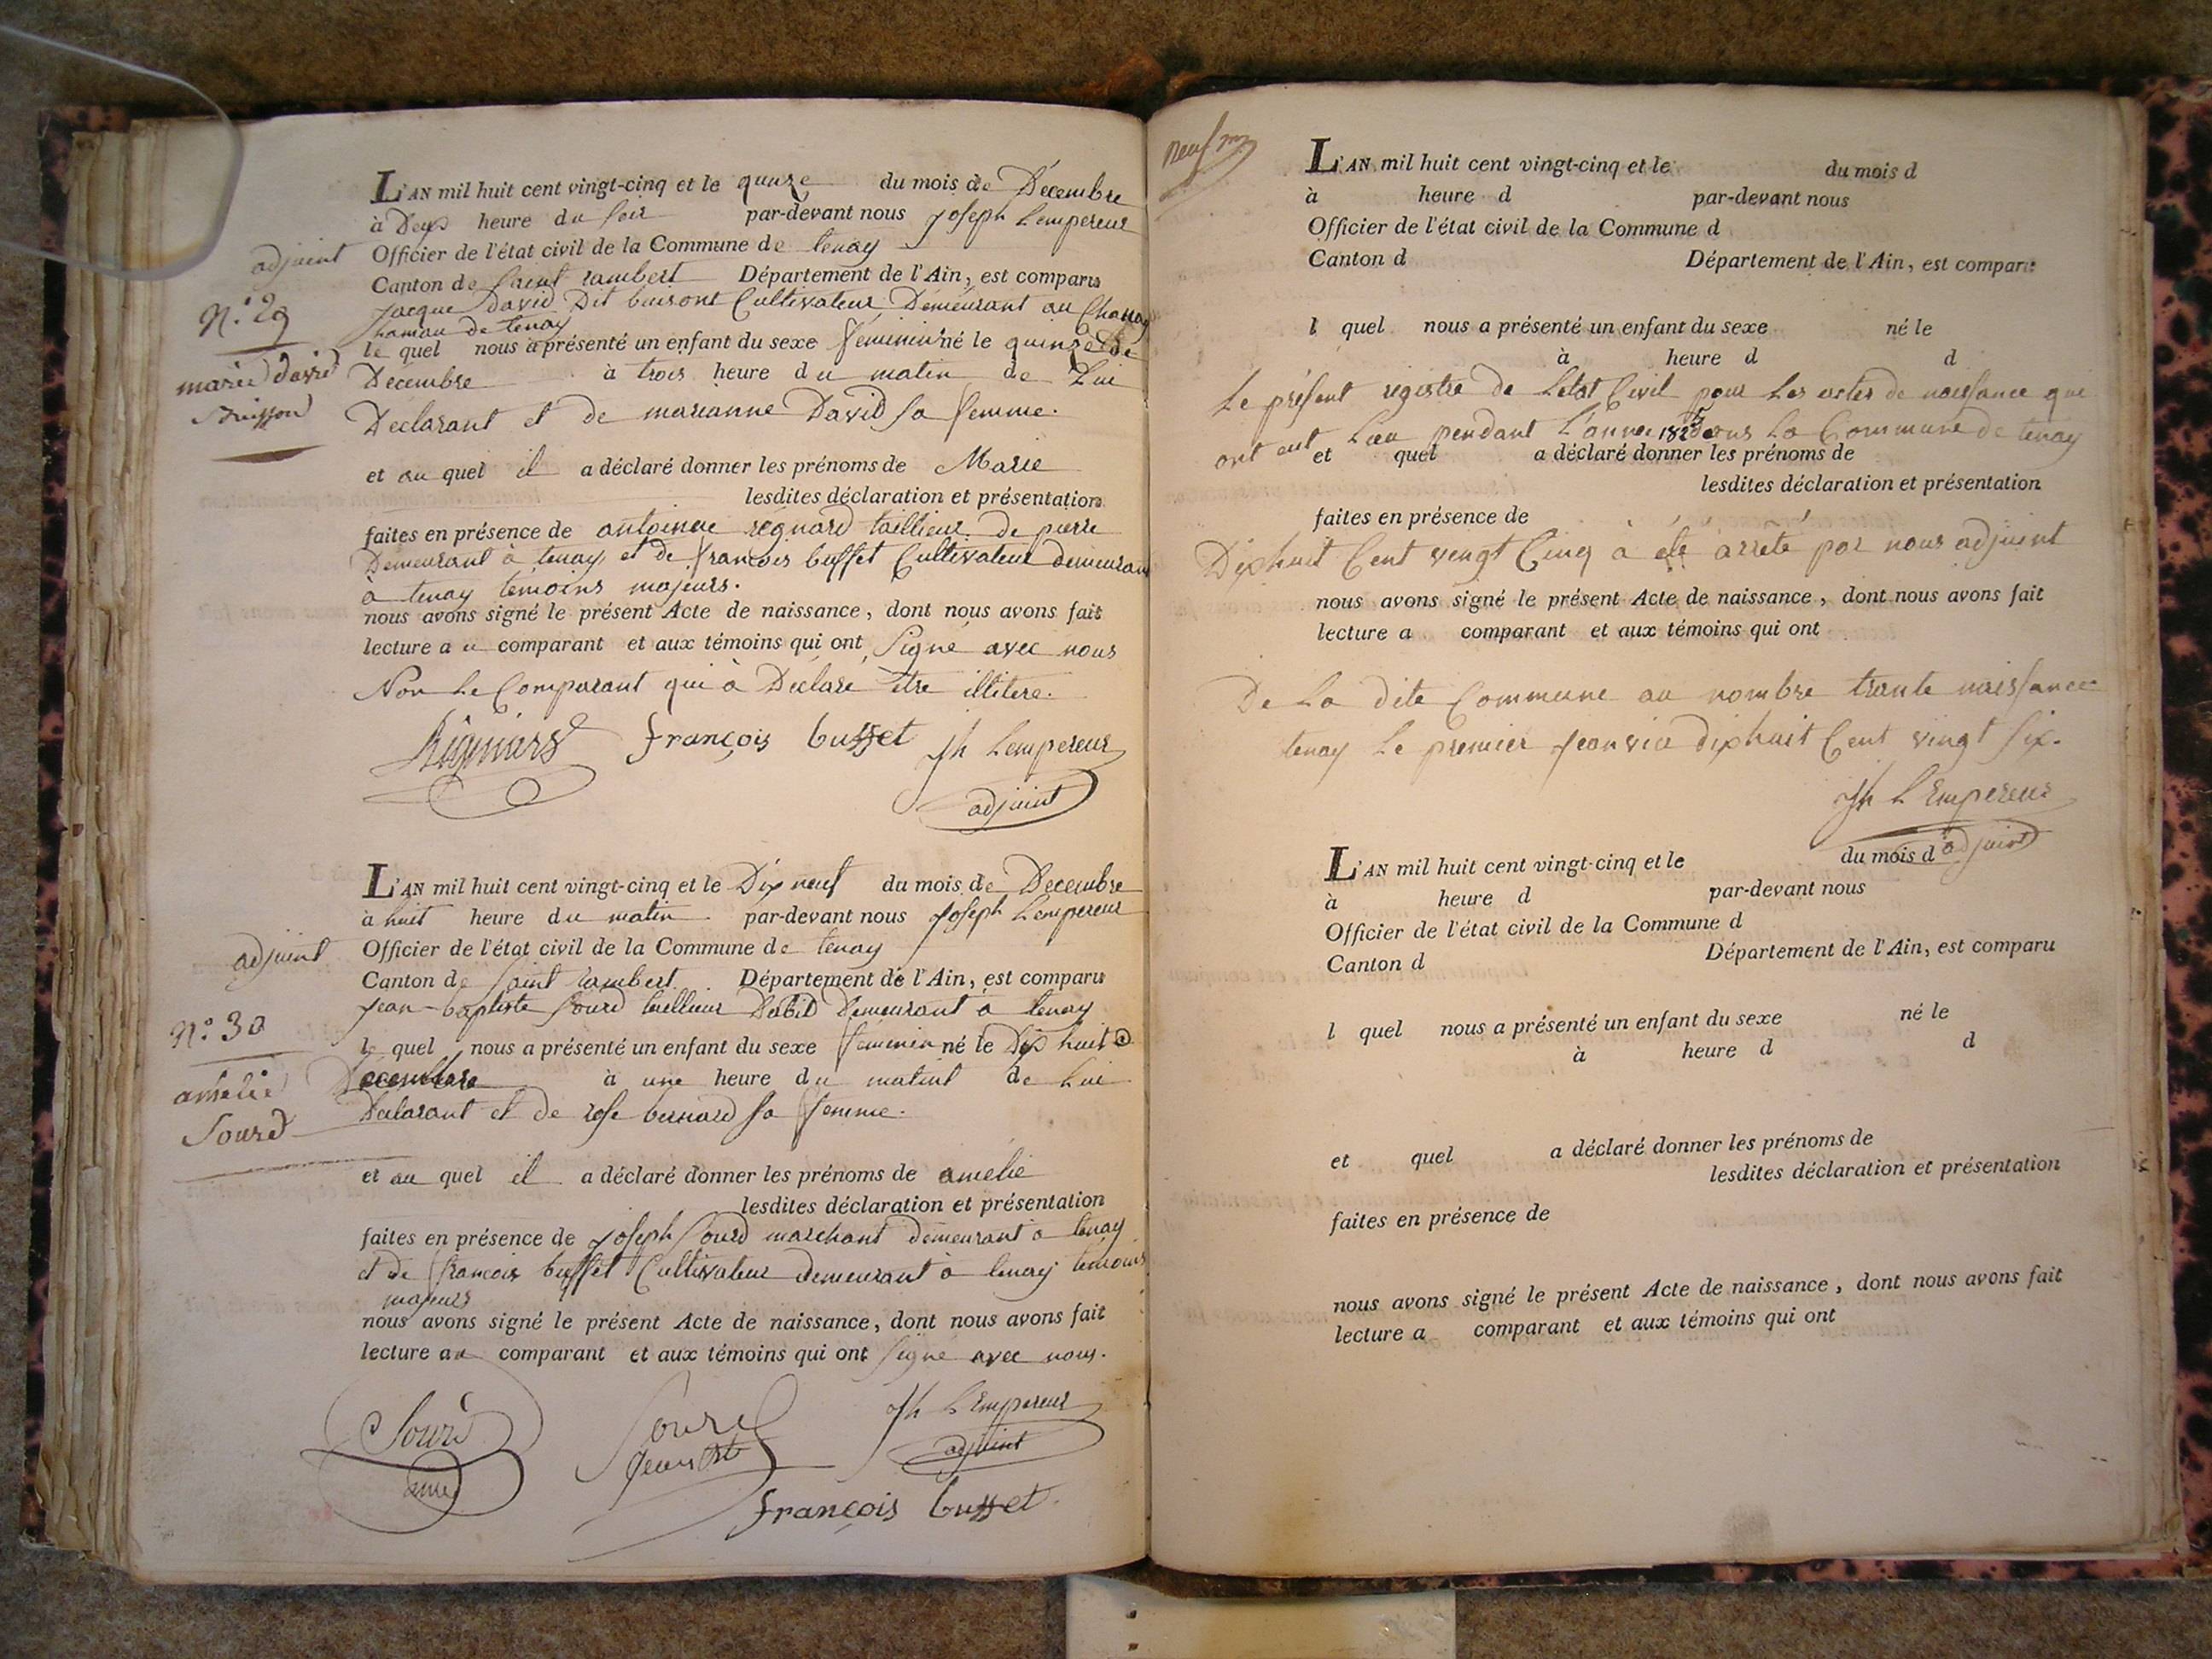 L'AN mil huit cent vingt-cinq et le quinze du mois de Décembre
à Deux heure du soir par-devant nous Joseph Lempereur
adjoint Officier de l'état civil de la Commune de tenay
Canton de Saint rambert Département de l'Ain, est comparu
N.° 29
jacque David Dit buisont Cultivateur Demeurant au
hamau de tenay
le quel nous a présenté un enfant du sexe feminin né le quinze de
marie david
Buisson
Décembre à trois heure du matin de Lui
Declarant et de marianne David sa femme.
et au quel il a déclaré donner les prénoms de Marie
lesdites déclaration et présentation
faites en présence de antoinne regnard taillieur de pierre
Demeurant à tenay et de francois buffet Cultivateur demeurant
à tenay temoins majeurs.
nous avons signé le présent Acte de naissance, dont nous avons fait
lecture au comparant et aux témoins qui ont Signé avec nous
Non Le Comparant qui à Declaré être illitere.
françois buffet Jh Lempereur
adjoint
L'AN mil huit cent vingt-cinq et le Dix neuf du mois de Decembre
à huit heure du matin par-devant nous Joseph Lempereur
adjoint Officier de l'état civil de la Commune de tenay
Canton de saint rambert Département de l'Ain, est comparu
N.° 30
jean-baptiste Sourd tailleur Dabit Demeurant à tenay
le quel nous a présenté un enfant du sexe feminin né le Dix huit
amelie
Sourd
Decembre à une heure du matint de Lui
Declarant et de rose bernard sa femme.
et au quel il a déclaré donner les prénoms de amelie
lesdites déclaration et présentation
faites en présence de joseph Sourd marchant demeurant à tenay
et de francois buffet Cultivateur demeurant à tenay temoins
majeurs
nous avons signé le présent Acte de naissance, dont nous avons fait
lecture au comparant et aux témoins qui ont signé avec nous.
Sourd
Sourd
Jh L'Empereur
adjoint
françois buffet
neuf
L'AN mil huit cent vingt-cinq et le du mois d
à heure d par-devant nous
Officier de l'état civil de la Commune d
Canton d Département de l'Ain, est compar
l quel nous a présenté un enfant du sexe né le
à heure d d
Le présent registre de Letat Civil pour Les actes de naissance que
ont eut Lieu pendant L'annee 1825 dans La Commune de tenay
et quel a déclaré donner les prénoms de
lesdites déclaration et présentation
faites en présence de
Dixhuit Cent vingt Cinq à été arreté par nous adjoint
nous avons signé le présent Acte de naissance, dont nous avons fait
lecture a comparant et aux témoins qui ont
De La dite Commune au nombre trante naissance
tenay Le premier jeanvié dixhuit Cent vingt six.
Jh L'Empereur
adjoint
L'AN mil huit cent vingt-cinq et le du mois d
à heure d par-devant nous
Officier de l'état civil de la Commune d
Canton d Département de l'Ain, est comparu
l quel nous a présenté un enfant du sexe né le
à heure d d
et quel a déclaré donner les prénoms de
lesdites déclaration et présentation
faites en présence de
nous avons signé le présent Acte de naissance, dont nous avons fait
lecture a comparant et aux témoins qui ont